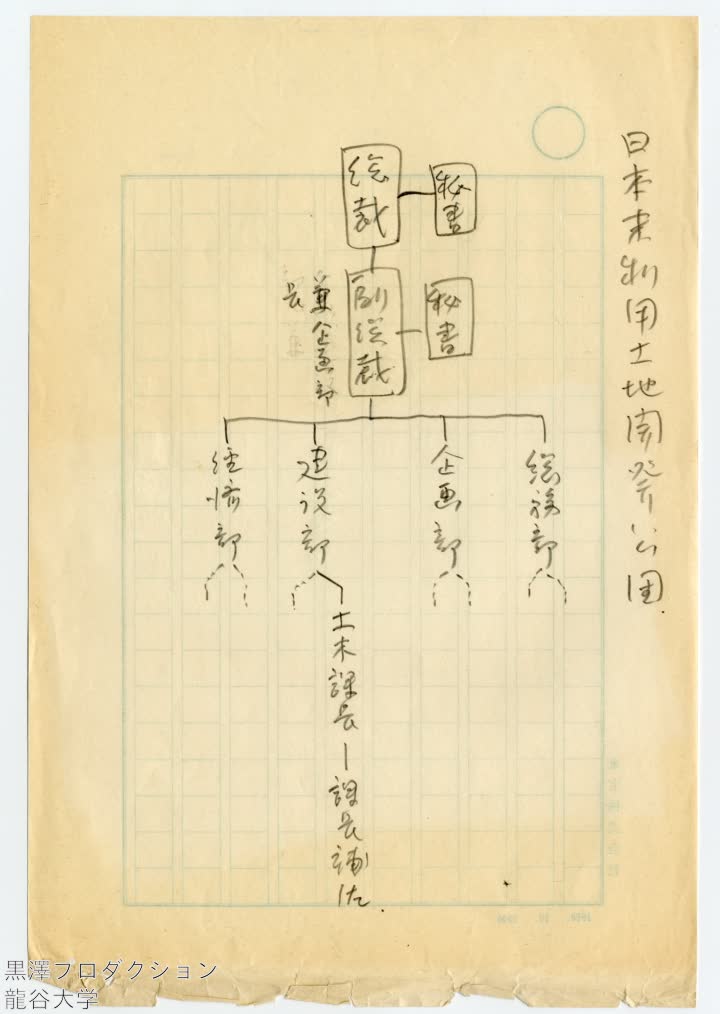 日本未利用土地開発公団
総裁
秘書
副総裁
秘書
兼企画部
長
総務部
企画部
建設部
経済部
土木課長ー課長補佐
黒澤プロダクション
龍谷大学